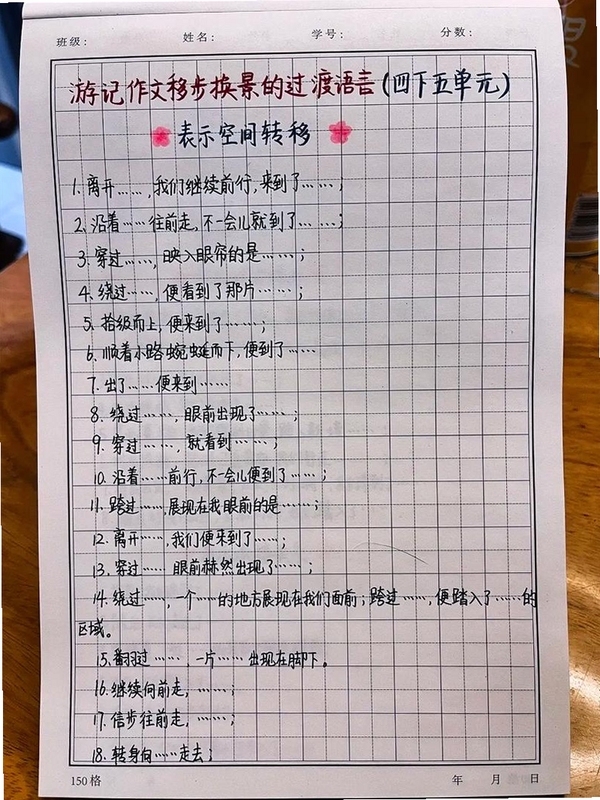 班级： 姓名： 学号： 分数：
游记作文移步换景的过渡语言(四下五单元)
表示空间转移
1. 离开……，我们继续前行，来到了……；
2. 沿着……往前走，不一会儿就到了……；
3. 穿过……，映入眼帘的是……；
4. 绕过……，便看到了那片……；
5. 拾级而上，便来到了……；
6. 顺着小路蜿蜒而下，便到了……
7. 出了……便来到……
8. 绕过……，眼前出现了……；
9. 穿过……，就看到……；
10. 沿着……前行，不一会儿便到了……；
11. 跨过……，展现在我眼前的是……；
12. 离开……，我们便来到了……；
13. 穿过…… 眼前赫然出现了……；
14. 绕过……，一个……的地方展现在我们面前；跨过……，便踏入了……的
区域。
15. 翻过……，一片……出现在脚下。
16. 继续向前走，……；
17. 信步往前走，……；
18. 转身向……走去；
150格 年 月 日